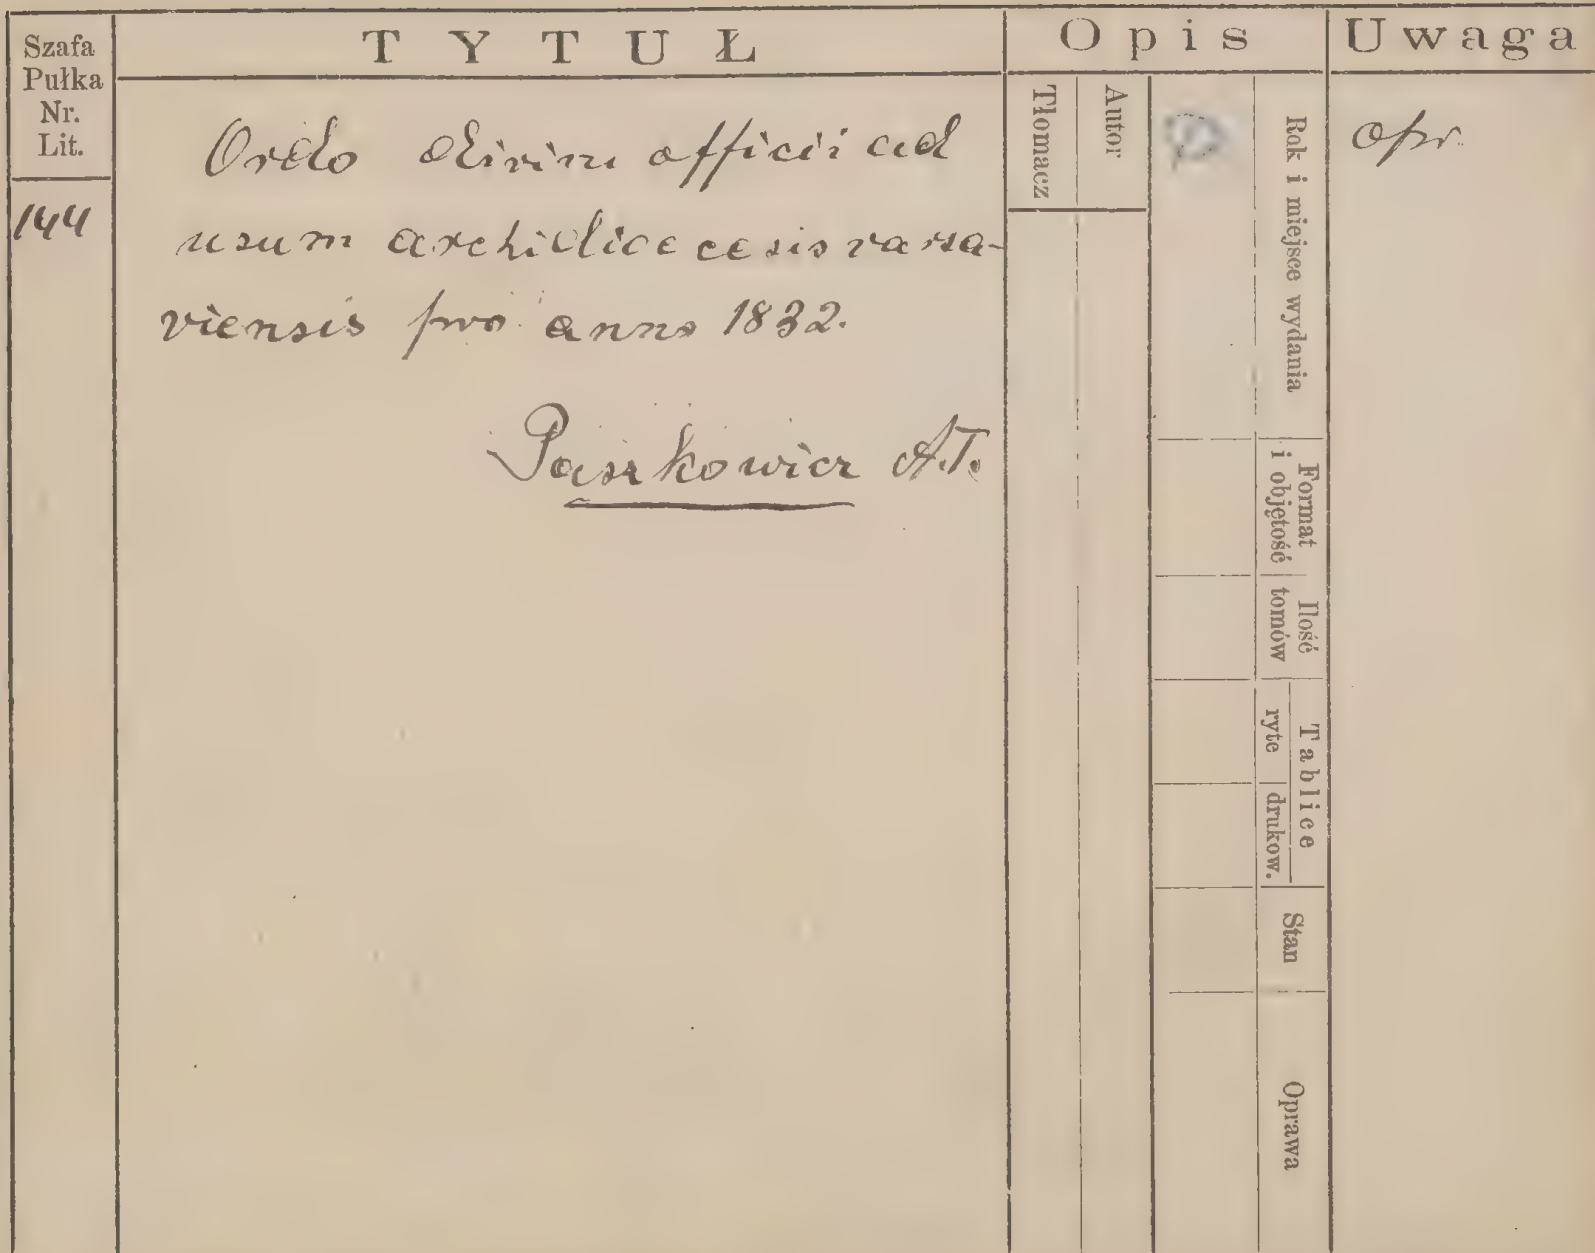 Szafa
Pułka
Nr.
Lit.
TYTUŁ
Opis
Uwaga
144
Ordo divini officii ad
usum archidioecesis varsa-
viensis pro anno 1832.
Paszkowicz A.T.
Tłomacz
Autor
Rok i miejsce wydania
Format
i objętość
Ilość
tomów
Tablice
ryte
drukow.
Stan
Oprawa
opr.